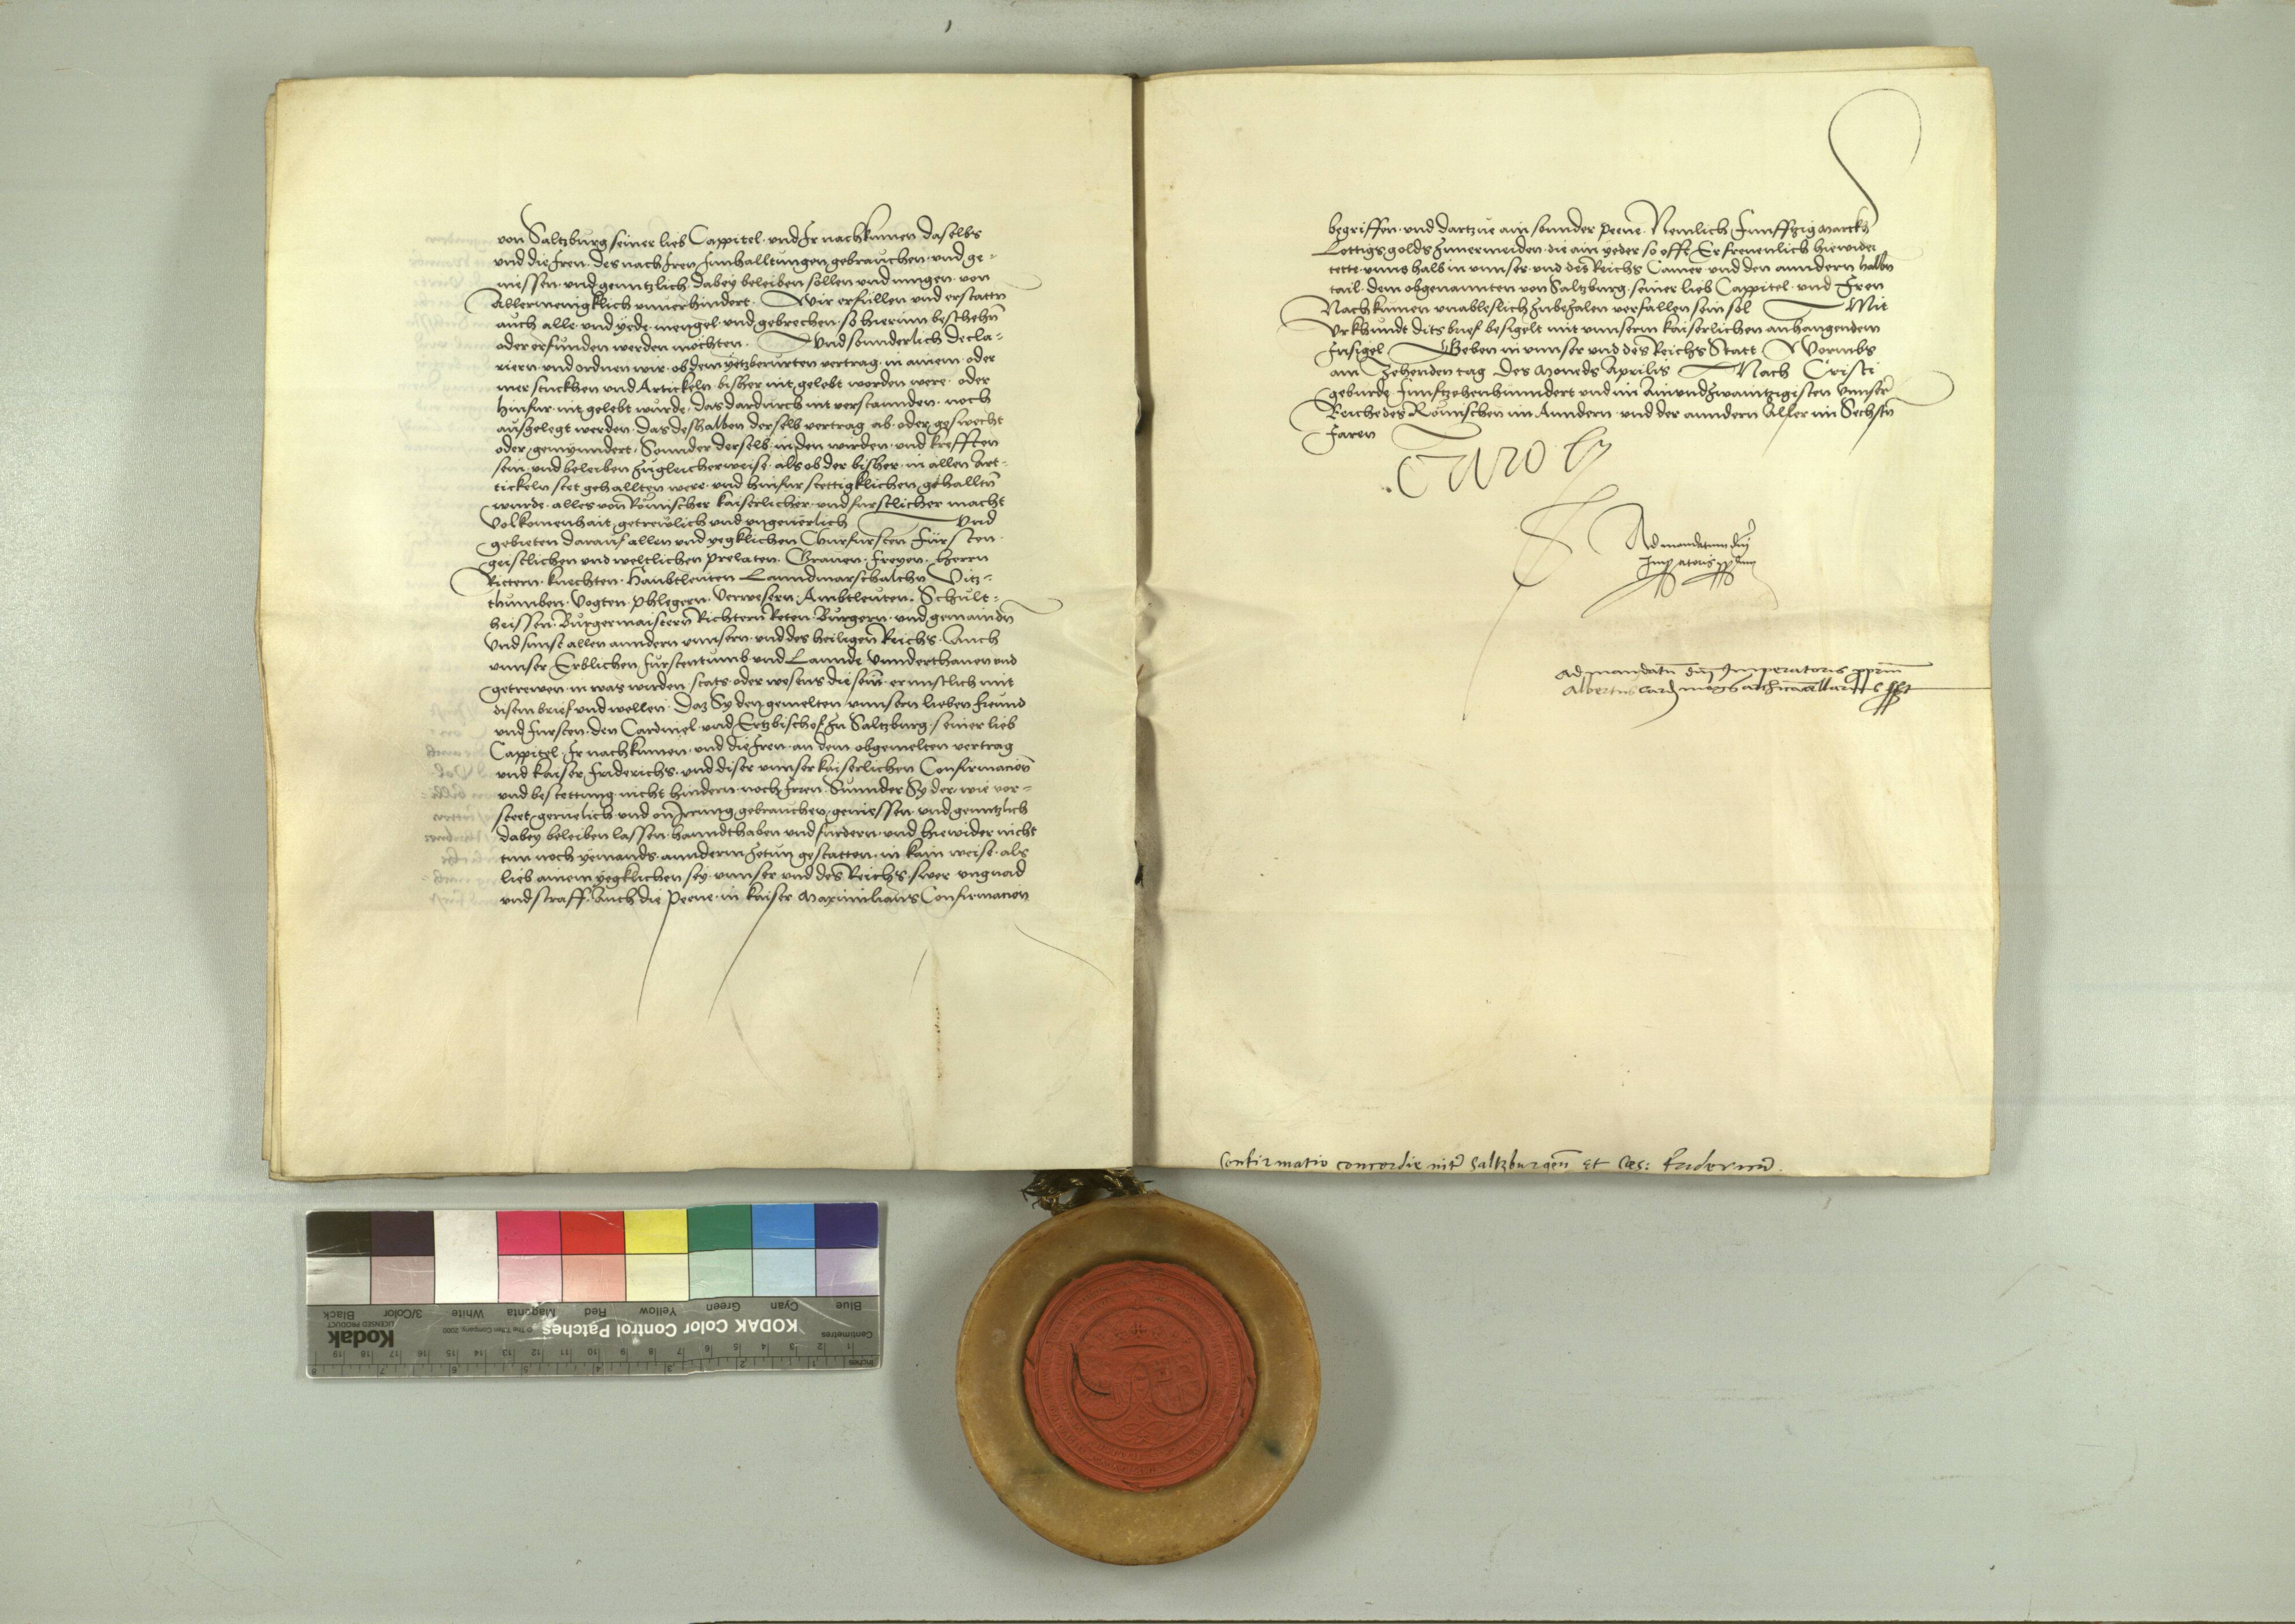 von Saltzburg seiner lieb Cappitel. und Ir nachkumen daselbs
und die Iren. des nach Iren Innhalltungen gebrauchen. und ge-
niessen. und genntzlich dabey beleiben sollen und mugen. von
Allermenigklich unverhindert. Wir erfüllen und erstattn
auch alle. und yede. mengel. und gebrechen. so hierinn beschehn
oder erfunden werden möchten. Und sonnderlich decla-
riern. und ordnen wir. ob dem yetzberürten vertrag. in ainem. oder
mer stuckhen und Artickeln. bisher nit gelebt worden were. oder
hinfur. nit gelebt wurde. das dardurch nit verstannden. noch
ausgelegt werden. das deshalben derselb vertrag ab. oder geswecht
oder gemynndert. Sonnder derselb. in den wirden. und krefften
sein. und beleiben zugleicherweise. als ob der bisher. in allen Art-
tickeln stet gehallten were. und hinfur stettigklichen gehalltn
wurde. alles von Römischer kaiserlicher. und furstlicher macht
Volkomenhait. getrewlich und ungeuerlich Und
gebieten darauf allen und yegklichen Churfursten Fürsten.
geistlichen und weltlichen prelaten. Grauen. Freyen. herrn
Rittern. knechten. haubtleuten Lanndmarschalchn Vitz-
thumben. Vögten. phlegern. Verwesern. Ambtleuten. Schult-
heissen. Burgermaistern Richtern Reten. Burgern. und gemaindn
Und sunst allen anndern unnsern. und des heiligen Reichs. Auch
unnser Erblichen furstentumb und Lannde Unnderthanen und
getrewen. in was wirden stats. oder wesens die sein. ernnstlich mit
disem brief und wellen. Daz Sy den gemelten unnsern lieben freund
und fursten. den Cardinel. und Ertzbischof zu Saltzburg. seiner lieb
Cappitel. Ir nachkumen. und die Iren. an dem obgemelten vertrag
und kaiser Friderichs. und diser unnser kaiserlichen Confirmacion
und bestettung nicht hindern. noch Irren. Sunnder Sy der. wie vor-
steet. geruelich. und on Irrung gebrauchen. geniessen. und genntzlich
dabey beleiben lassen. hanndthaben und furdern. und hiewider nicht
tun noch yemands. anndern zetun gestatten. in kain weise. als
lieb ainem yegklichen sey. unnser und des Reichs. swer ungnad
und straff. Auch die Peene. in kaiser Maximilians Confirmacion
begriffen. und dartzue ain sonnder peene. Nemlich Funffzig marckh
Lottigs golds zuuermeiden. die ain yeder so offt Er freuenlich hiewider
tette. unns halb in unnser. und des Reichs Camer und den anndern halbn
tail. dem obgenannten von Saltzburg. seiner lieb Cappitel. und Iren
Nachkumen unableslich zubezalen verfallen sein sol Mit
Urkhundt dits brief besigelt mit unnserm kaiserlichen anhangendem
Insigel Geben in unnser und des Reichs Statt Wormbs
am Zehenden tag des Moneds Aprilis Nach Cristi
geburde. Funfftzehenhunndert und im Ainundzwaintzigisten Unnser
Reiche des Römischen im Anndern. und der anndern Aller im Sechstn
Jaren
Carolus
Ad mandatum dni
Imperatoris pprium
Ad mandatu dni Imperatoris pprium
Albertus card mogs archicancellarius sst
Confirmatio concordie inter Saltzburgen et Ces: Fridericum.
KODAK Color Control Patches
Kodak
LICENSED PRODUCT
© The Tiffen Company, 2000
Blue Cyan Green Yellow Red Magenta White 3/Color Black
Centimetres
Inches
1 2 3 4 5 6 7 8 9 10 11 12 13 14 15 16 17 18 19
1 2 3 4 5 6 7 8